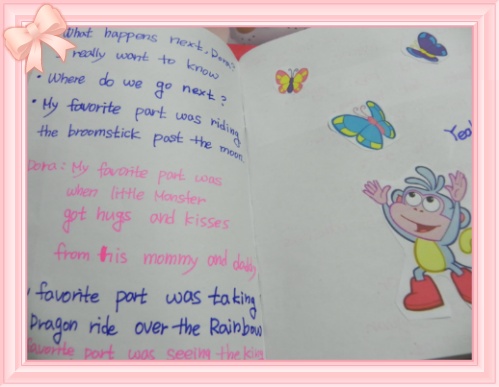 What happens next, Dora?
really want to know
• Where do we go next?
• My favorite part was riding
the broomstick past the moon.
Dora: My favorite part was
when little Monster
got hugs and kisses
from his mommy and daddy
favorite part was taking
Dragon ride over the Rainbow
favorite part was seeing the king
Yea!